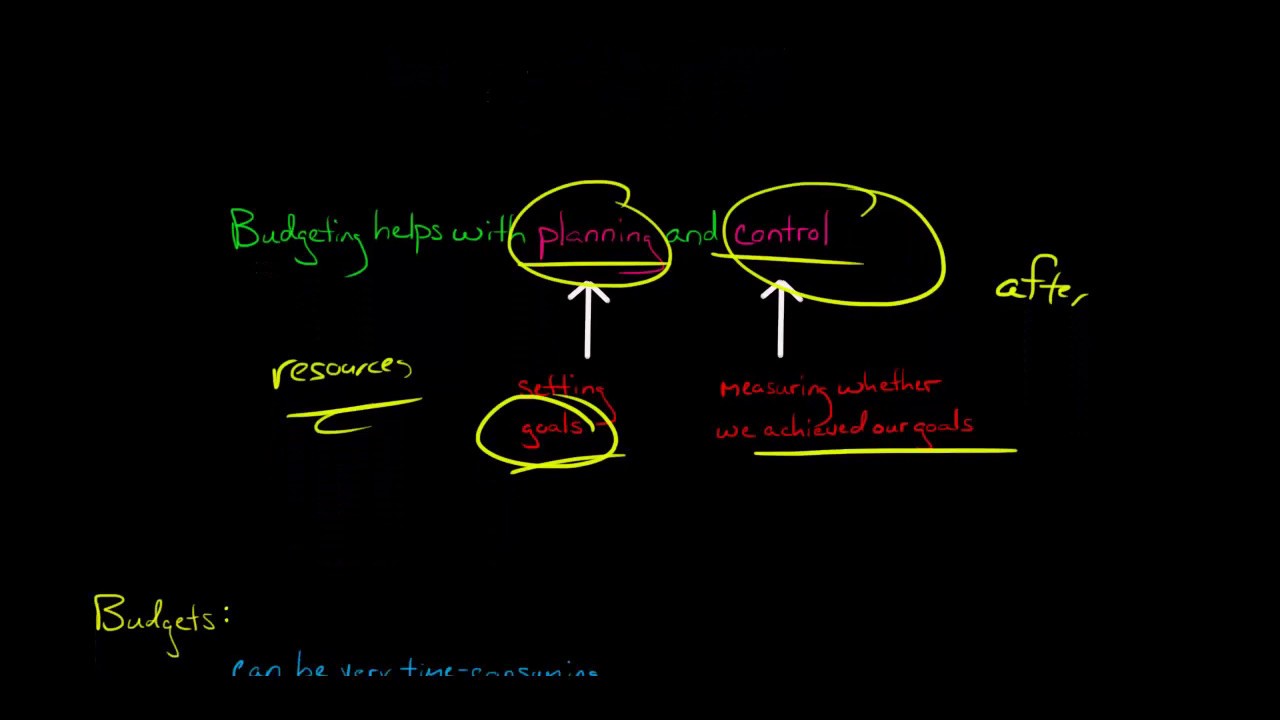 Budgeting helps with planning and control
after
resources
setting
goals
measuring whether
we achieved our goals
Budgets:
can be very time-consuming